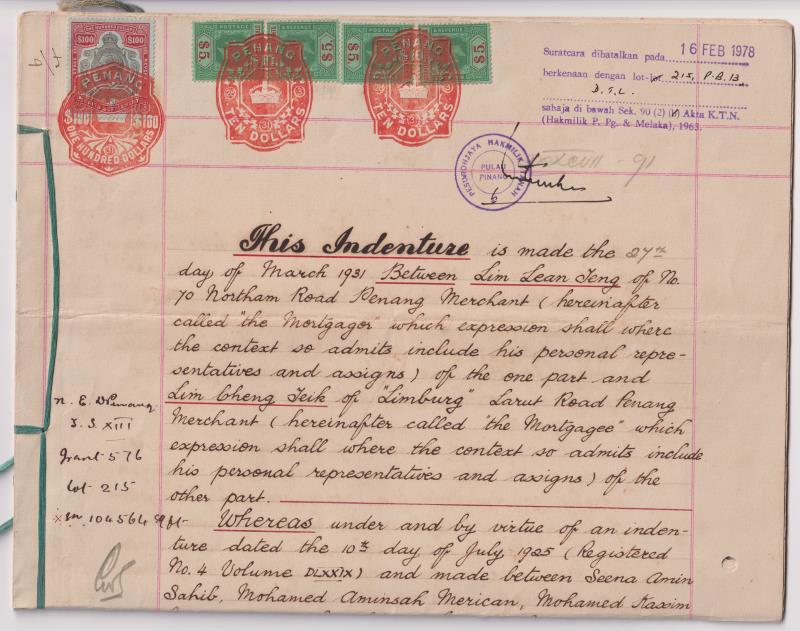 $100 $100
PENANG
$100 $100
ONE HUNDRED DOLLARS
$5 POSTAGE & REVENUE $5
PENANG
TEN DOLLARS
$5 POSTAGE & REVENUE $5
PENANG
TEN DOLLARS
Suratcara dibatalkan pada 16 FEB 1978
berkenaan dengan lot-lot 215, P.B. 13
D.T.L.
sahaja di bawah Sek. 90 (2) Akta K.T.N.
(Hakmilik P. Pg. & Melaka), 1963.
HAKMILIK TANAH
PULAU
PINANG
This Indenture is made the 27th
day of March 1931 Between Lim Lean Teng of No.
70 Northam Road Penang Merchant (hereinafter
called "the Mortgagor" which expression shall where
the context so admits include his personal repre-
sentatives and assigns) of the one part and
Lim Cheng Teik of "Limburg" Larut Road Penang
Merchant (hereinafter called "the Mortgagee" which
expression shall where the context so admits include
his personal representatives and assigns) of the
other part.
Whereas under and by virtue of an inden-
ture dated the 10th day of July 1925 (Registered
No. 4 Volume DLXXIX) and made between Seena Amin
Sahib, Mohamed Aminsah Merican, Mohamed Kassim
N. E. D Penang
T. S XIII
Grant 576
Lot 215
104564 sq ft